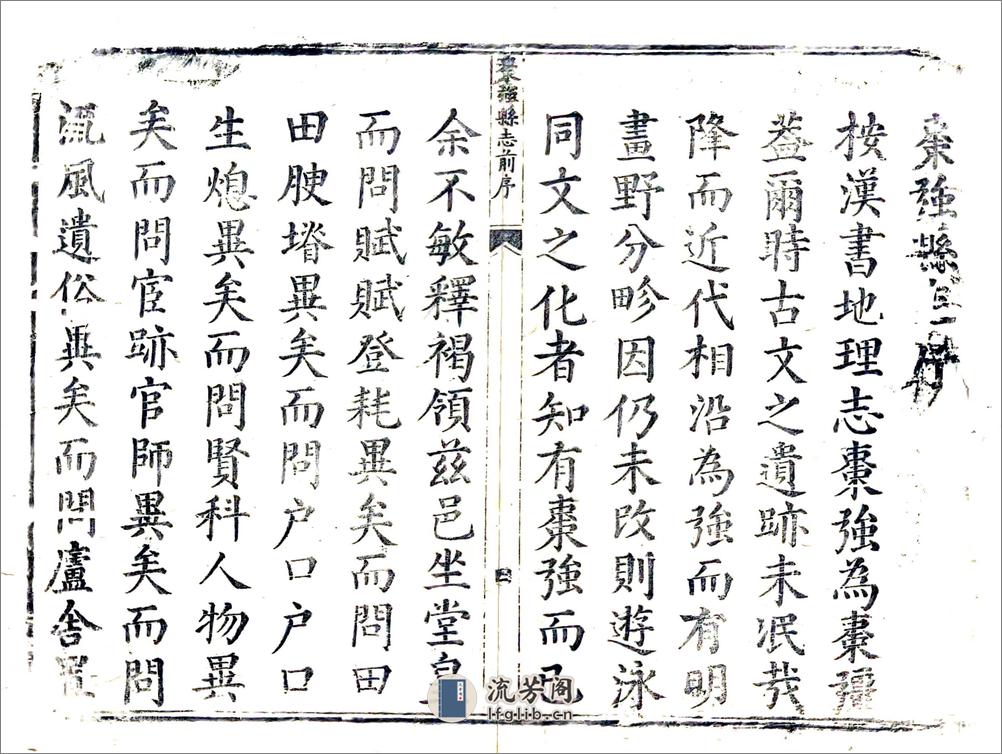 棗強縣志序
按漢書地理志棗強為棗彊
葢爾時古文之遺跡未泯哉
降而近代相沿為強而有明
畫野分畛因仍未改則遊泳
同文之化者知有棗強而已
棗強縣志前序
四
余不敏釋褐領茲邑坐堂皇
而問賦賦登耗異矣而問田
田腴堉異矣而問户口户口
生熄異矣而問賢科人物異
矣而問宦跡官師異矣而問
流風遺俗異矣而問廬舍罷
流芳阁
lfglib.cn